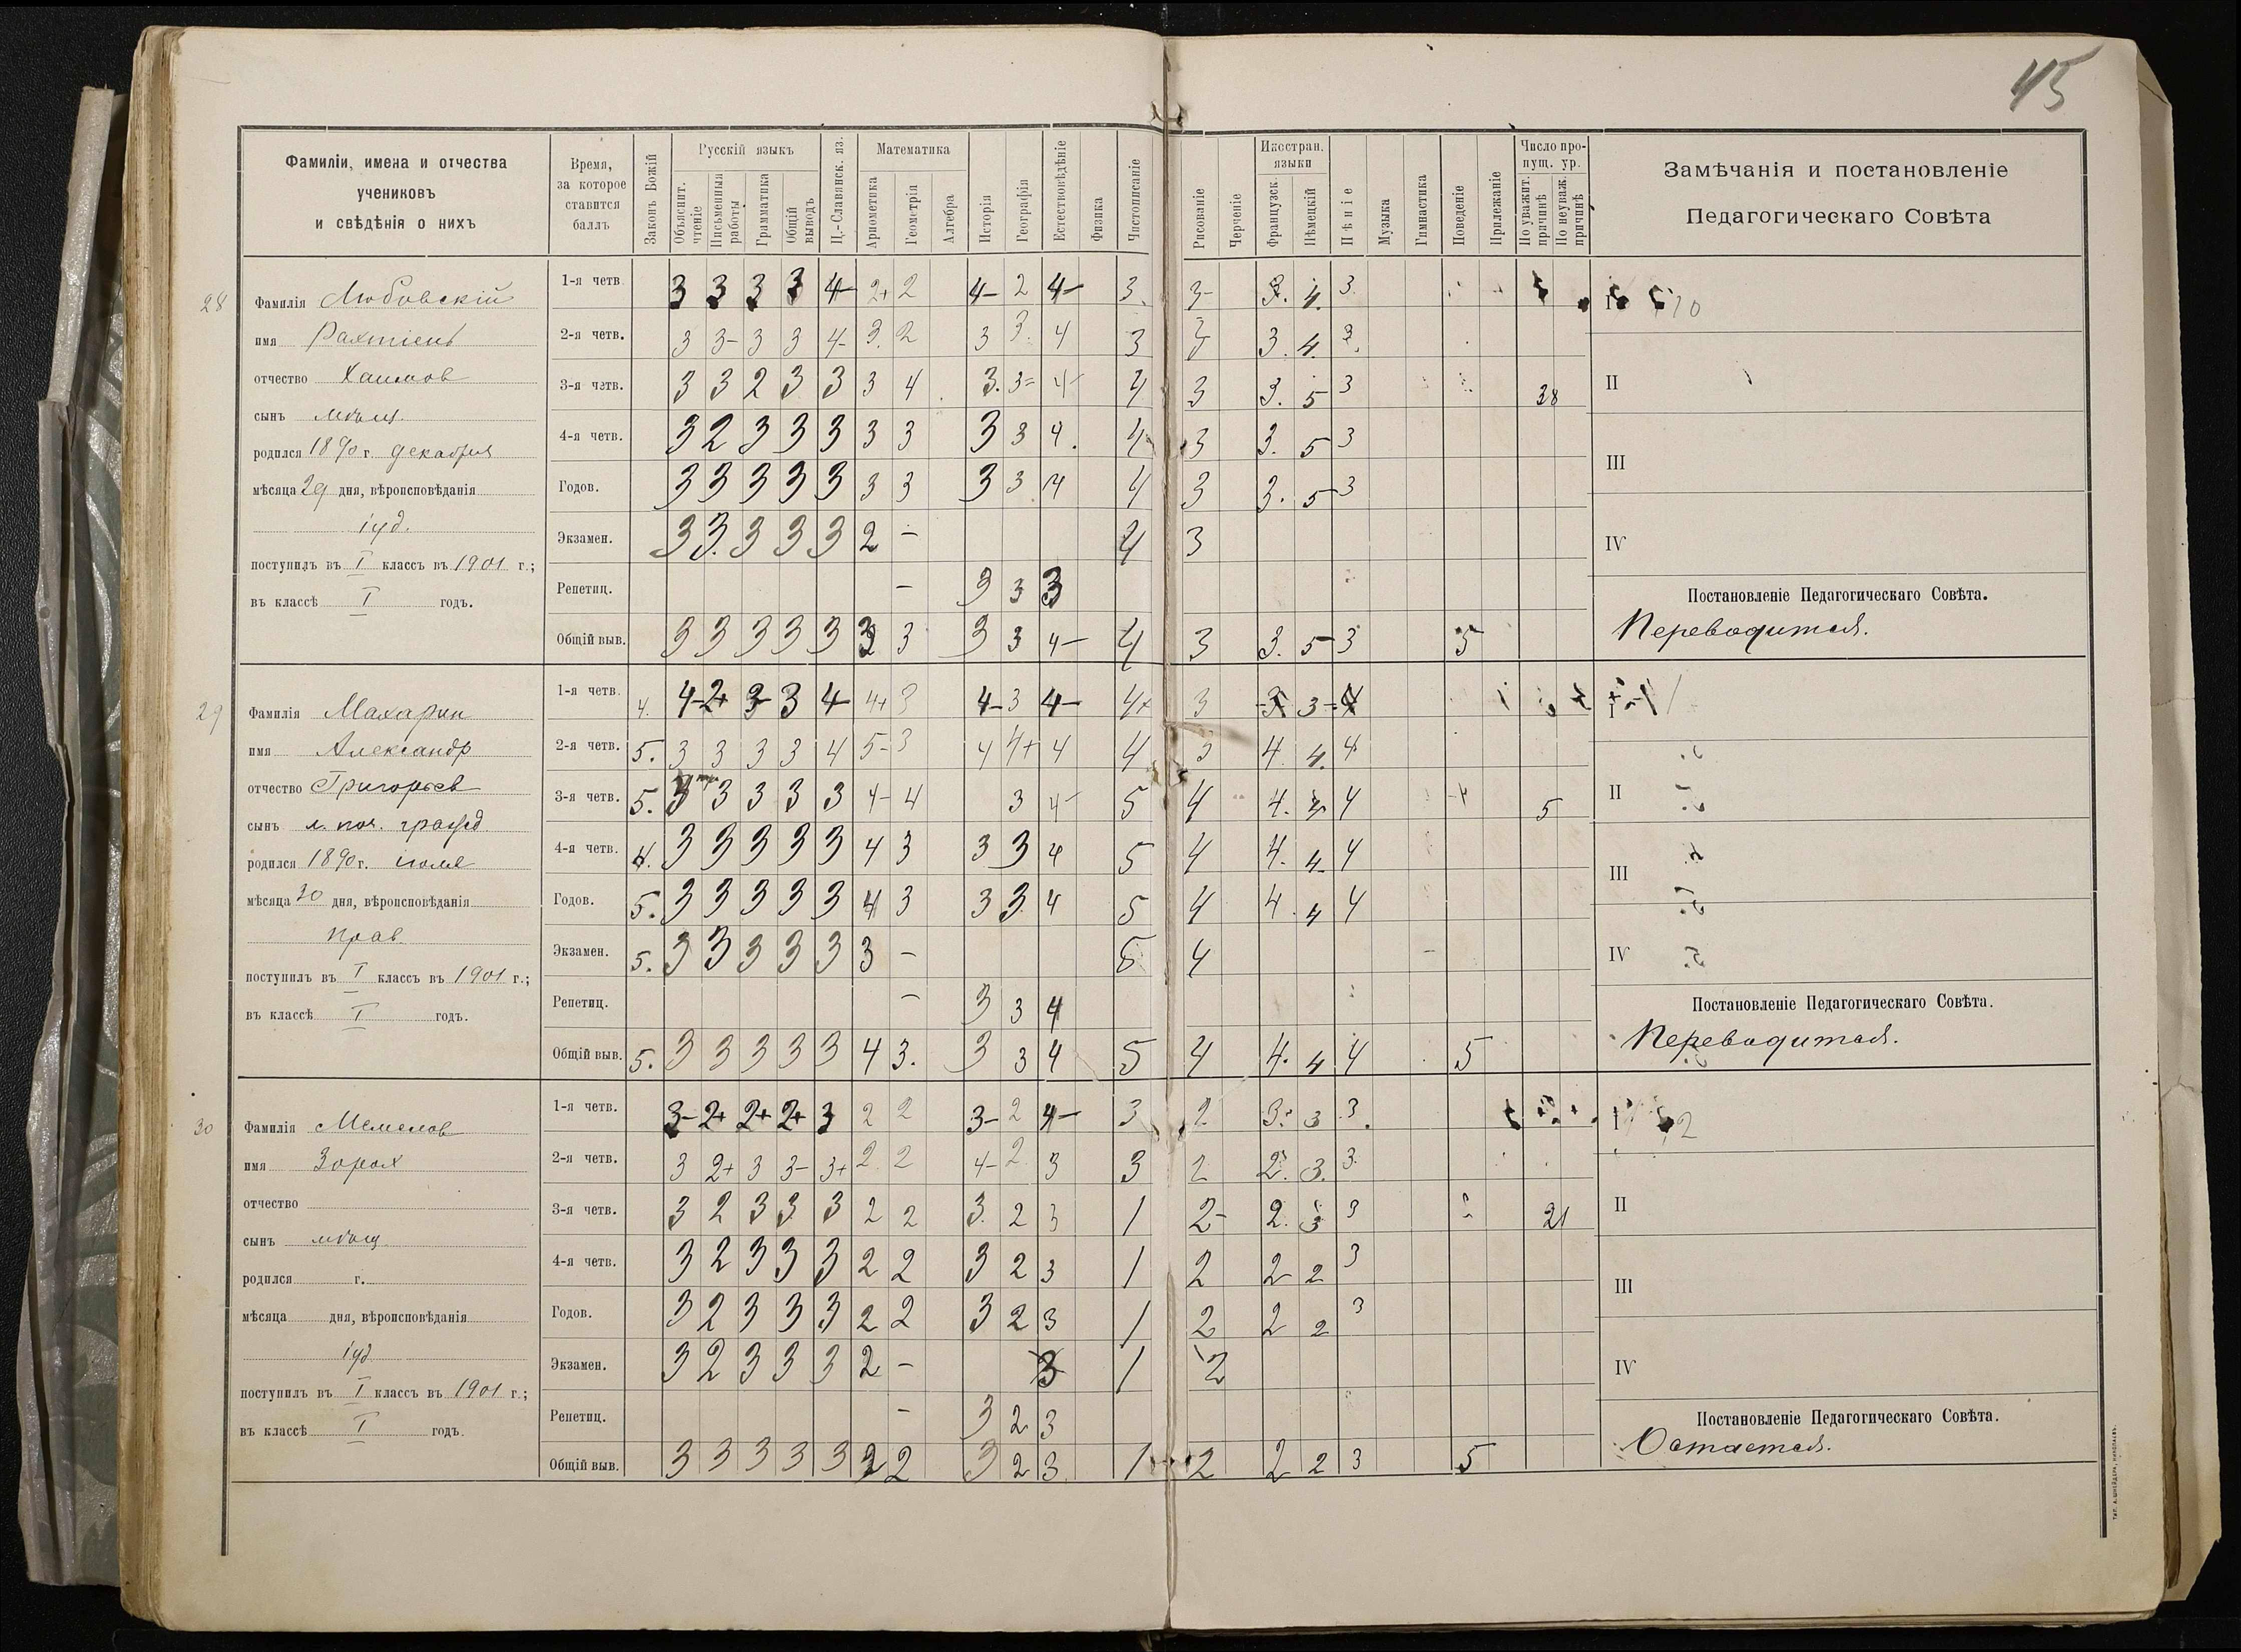 45
Фамиліи, имена и отчества
учениковъ
и свѣдѣнія о нихъ
Время,
за которое
ставится
баллъ
Законъ Божій
Русскій языкъ
Объяснит. чтеніе
Письменныя работы
Грамматика
Общій выводъ
Ц.-Славянск. яз.
Математика
Ариѳметика
Геометрія
Алгебра
Исторія
Географія
Естествовѣдѣніе
Физика
Чистописаніе
Рисованіе
Черченіе
Иностран. языки
Французск.
Нѣмецкій
Пѣніе
Музыка
Гимнастика
Поведеніе
Прилежаніе
Число пропущ. ур.
По уважит. причинѣ
По неуваж. причинѣ
Замѣчанія и постановленіе
Педагогическаго Совѣта
28
Фамилія Любовскій
имя
отчество Хаимов
сынъ мѣщ.
родился 1890 г. декабря
мѣсяца 29 дня, вѣроисповѣданія
іуд.
поступилъ въ I классъ въ 1901 г.;
въ классѣ I годъ.
1-я четв. 3 3 3 3 4- 2+ 2 4- 2 4- 3. 3- 3. 4. 3
2-я четв. 3 3- 3 3 4- 3. 2 3 3. 4 3 3. 4. 3
3-я четв. 3 3 2 3 3 3 4 3. 3= 4- 4 3 3. 5 3 38
4-я четв. 3 2 3 3 3 3 3 3 3 4. 4 3 3. 5 3
Годов. 3 3 3 3 3 3 3 3 3 4 4 3 3. 5 3
Экзамен. 3 3. 3 3 3 2 - 4 3
Репетиц. - 3 3 3
Общій выв. 3 3 3 3 3 3 3 3 3 4- 4 3 3. 5 3 5
I
II
III
IV
Постановленіе Педагогическаго Совѣта.
Переводится.
29
Фамилія Махарин
имя Александр
отчество Григорьев
сынъ л. поч. гражд
родился 1890 г. іюля
мѣсяца 30 дня, вѣроисповѣданія
прав.
поступилъ въ I классъ въ 1901 г.;
въ классѣ I годъ.
1-я четв. 4. 4- 2+ 3- 3 4- 4+ 3 4- 3 4- 4+ 3 3 3 4
2-я четв. 5. 3 3 3 3 4 5- 3 4 4+ 4 4 3 4. 4. 4
3-я четв. 5. 3 3 3 3 3 4- 4 3 4- 5 4 4. 4 5
4-я четв. 4. 3 3 3 3 3 4 3 3 3 4 5 4 4. 4 4
Годов. 5. 3 3 3 3 3 4 3 3 3. 4 5 4 4. 4 4
Экзамен. 5. 3 3 3 3 3 3 - 5 4
Репетиц. - 3 3 4
Общій выв. 5. 3 3 3 3 3 4 3. 3 3 4 5 4 4. 4 4 5
I
II
III
IV
Постановленіе Педагогическаго Совѣта.
Переводится.
30
Фамилія Мемелов
имя Зорох
отчество
сынъ мѣщ
родился г.
мѣсяца дня, вѣроисповѣданія
іуд
поступилъ въ I классъ въ 1901 г.;
въ классѣ I годъ.
1-я четв. 3- 2+ 2+ 2+ 3 2 2 3- 2 4- 3 2 3. 3 3
2-я четв. 3 2+ 3 3- 3+ 2 2 4- 2 3 3 2 2. 3. 3
3-я четв. 3 2 3 3 3 2 2 3. 2 3 1 2- 2. 3 3 21
4-я четв. 3 2 3 3 3 2 2 3 2 3 1 2 2 2 3
Годов. 3 2 3 3 3 2 2 3 2 3 1 2 2 2 3
Экзамен. 3 2 3 3 3 2 - 3 1 2
Репетиц. - 3 2 3
Общій выв. 3 3 3 3 3 2 2 3 2 3 1 2 2 2 3 5
I
II
III
IV
Постановленіе Педагогическаго Совѣта.
Остается.
ТИП. А. ШНЕЙДЕРА, НИКОЛАЕВЪ.